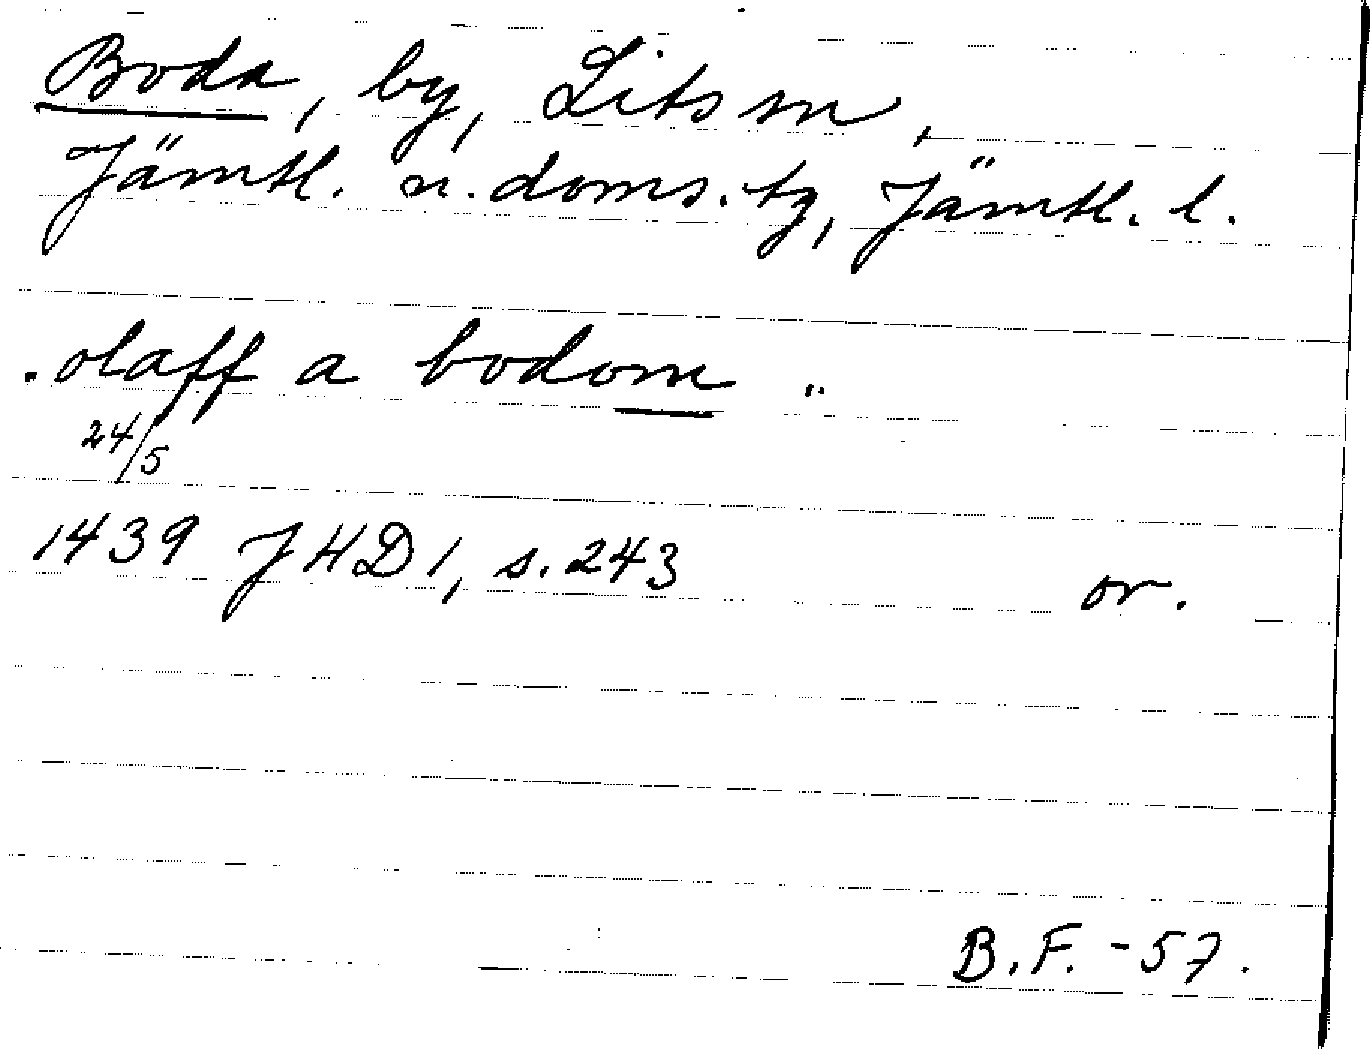 Boda, by, Lits sn,
Jämtl. n. doms. tg, Jämtl. l.
. olaff a bodom ..
24/5
1439 JHD 1, s. 243 or.
B.F. -57.